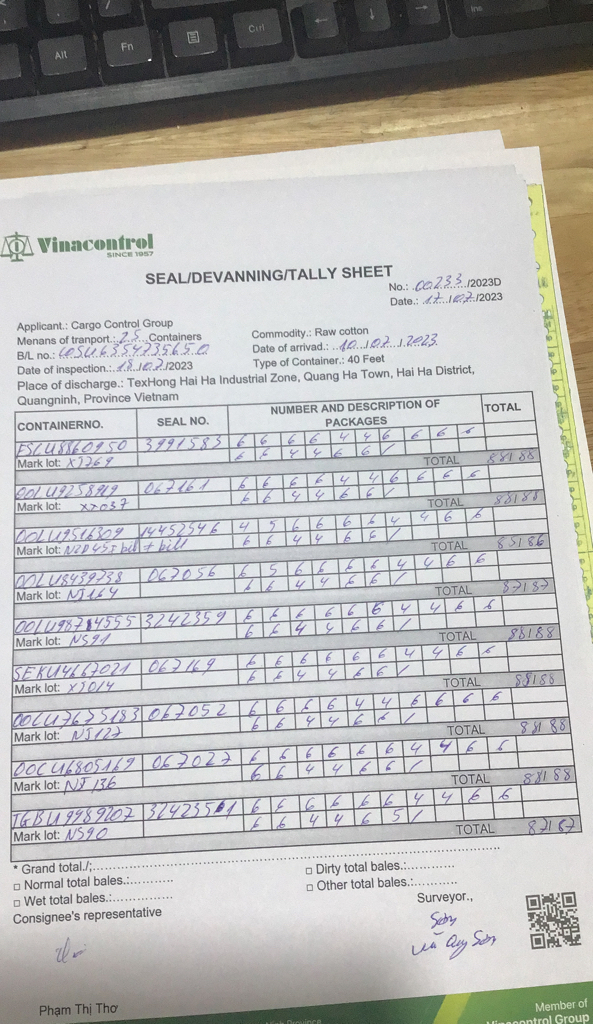 Alt
Fn
Ctrl
Ins
Vinacontrol
SINCE 1957
SEAL/DEVANNING/TALLY SHEET
No.: 00233/2023D
Date.: 17/07/2023
Applicant.: Cargo Control Group
Menans of tranport.: 25 Containers
Commodity.: Raw cotton
B/L no.: COSU6354735650
Date of arrivad.: 10/07/2023
Date of inspection.: 18/07/2023
Type of Container.: 40 Feet
Place of discharge.: TexHong Hai Ha Industrial Zone, Quang Ha Town, Hai Ha District,
Quangninh, Province Vietnam
CONTAINERNO. SEAL NO. NUMBER AND DESCRIPTION OF PACKAGES TOTAL
FSCU8860950 3991583 6 6 6 6 4 4 6 6 6 6
6 6 4 4 6 6 /
Mark lot: XJ269 TOTAL 88188
OOLU9258919 067161 6 6 6 6 6 4 4 6 6 6
6 6 4 4 6 6 /
Mark lot: XJ037 TOTAL 88188
OOLU9516309 14452546 4 5 6 6 6 6 4 4 6 6
6 6 4 4 6 6 /
Mark lot: TOTAL 85186
OOLU8439738 067056 6 5 6 6 6 6 4 4 6 6
6 6 4 4 6 6 /
Mark lot: NJ164 TOTAL 87187
3242359 6 6 6 6 6 6 4 4 6 6
6 6 4 4 6 6 /
Mark lot: NS91 TOTAL 88188
SEKU4667021 067169 6 6 6 6 6 6 4 4 6 6
6 6 4 4 6 6 /
Mark lot: XJ014 TOTAL 88188
OOCU7675183 067052 6 6 6 6 4 4 6 6 6 6
6 6 4 4 6 6 /
Mark lot: NJ127 TOTAL 88188
OOCU6805169 067027 6 6 6 6 6 6 4 4 6 6
6 6 4 4 6 6 /
Mark lot: NJ136 TOTAL 88188
TGBU9989207 6 6 6 6 6 6 4 4 6 6
6 6 4 4 6 5 /
Mark lot: NS90 TOTAL 87187
* Grand total./;
□ Normal total bales.:
□ Dirty total bales.:
□ Wet total bales.:
□ Other total bales.:
Consignee's representative
Surveyor.,
Sơn
Phạm Thị Thơ
Member of
Vinacontrol Group